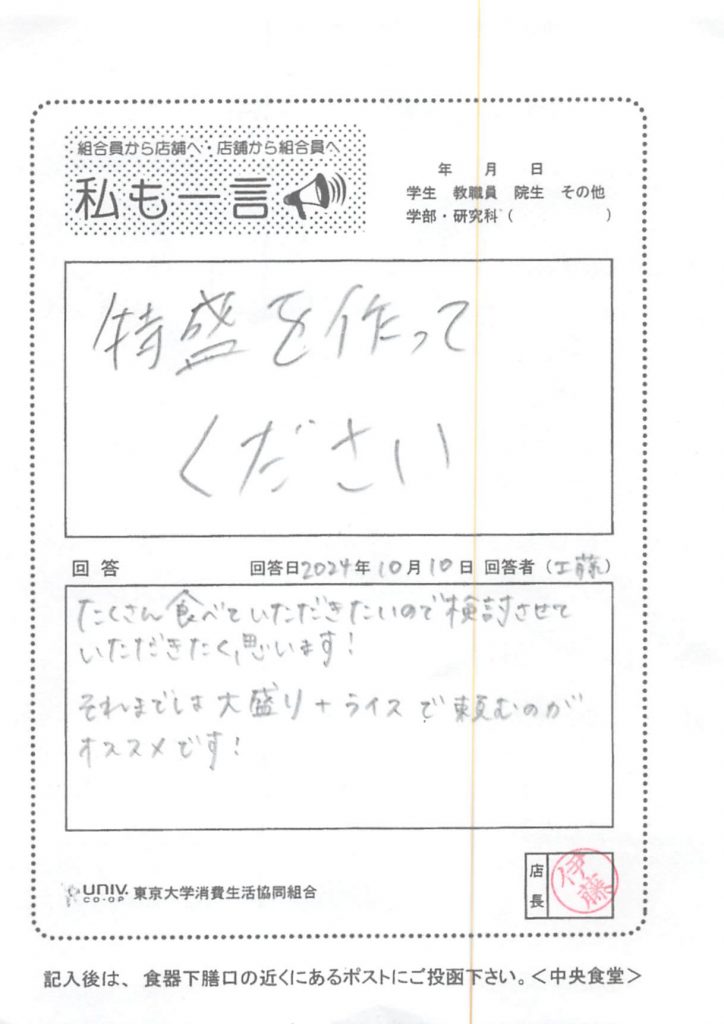 組合員から店舗へ・店舗から組合員へ
私も一言
年 月 日
学生 教職員 院生 その他
学部・研究科( )
特盛を作って
ください
回答 回答日2024年10月10日 回答者(工藤)
たくさん食べていただきたいので検討させて
いただきたく思います!
それまでは大盛り+ライスで頼むのが
オススメです!
UNIV. CO-OP 東京大学消費生活協同組合
店長 伊藤
記入後は、食器下膳口の近くにあるポストにご投函下さい。<中央食堂>